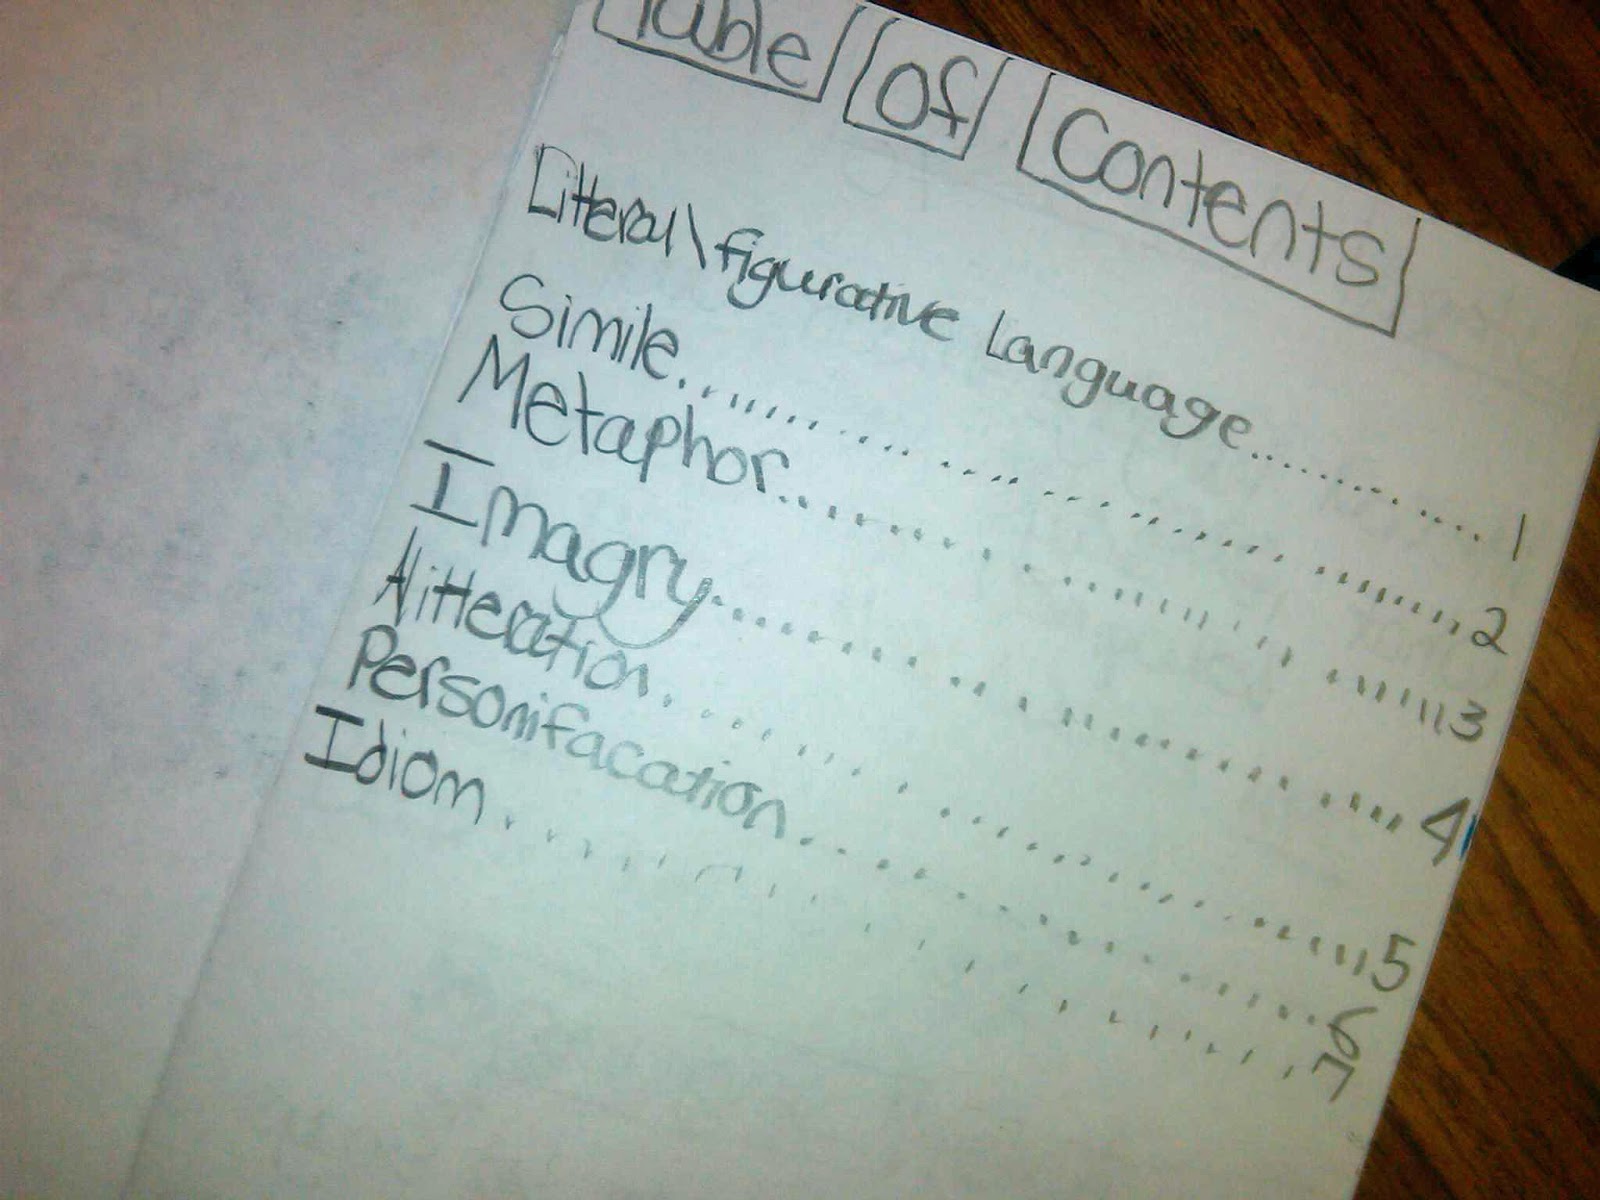 Table Of Contents
Litteral\figurative Language..................1
Simile.......................................2
Metaphor.......................................3
Imagry.......................................4
Alitteration.......................................5
Personifacation..............................6
Idiom..............................7